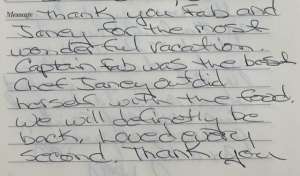 Message Thank you Fab and
Janey for the most
wonderful vacation.
Captain Fab was the best
Chef Janey outdid
herself with the food.
We will definetly be
back. Loved every
second. Thank you